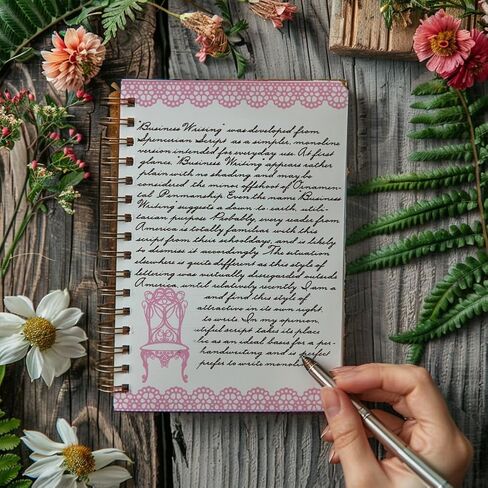 "Business Writing" was developed from
Spencerian Script as a simpler, monoline
version intended for everyday use. At first
glance, "Business Writing" appears rather
plain with no shading and may be
considered the minor offshoot of Ornamen-
tal Penmanship. Even the name "Business
Writing" suggests a down to earth utili-
tarian purpose. Probably, every reader from
America is totally familiar with this
script from this schooldays, and is likely
to dismiss it accordingly. The situation
elsewhere is quite different as this style of
lettering was virtually disregarded outside
America, until relatively recently. I am a
and find this style of
attractive in its own right
to write. In my opinion
utiful script takes its place
as an ideal bases for a per-
handwriting and is perfect
prefer to write monol